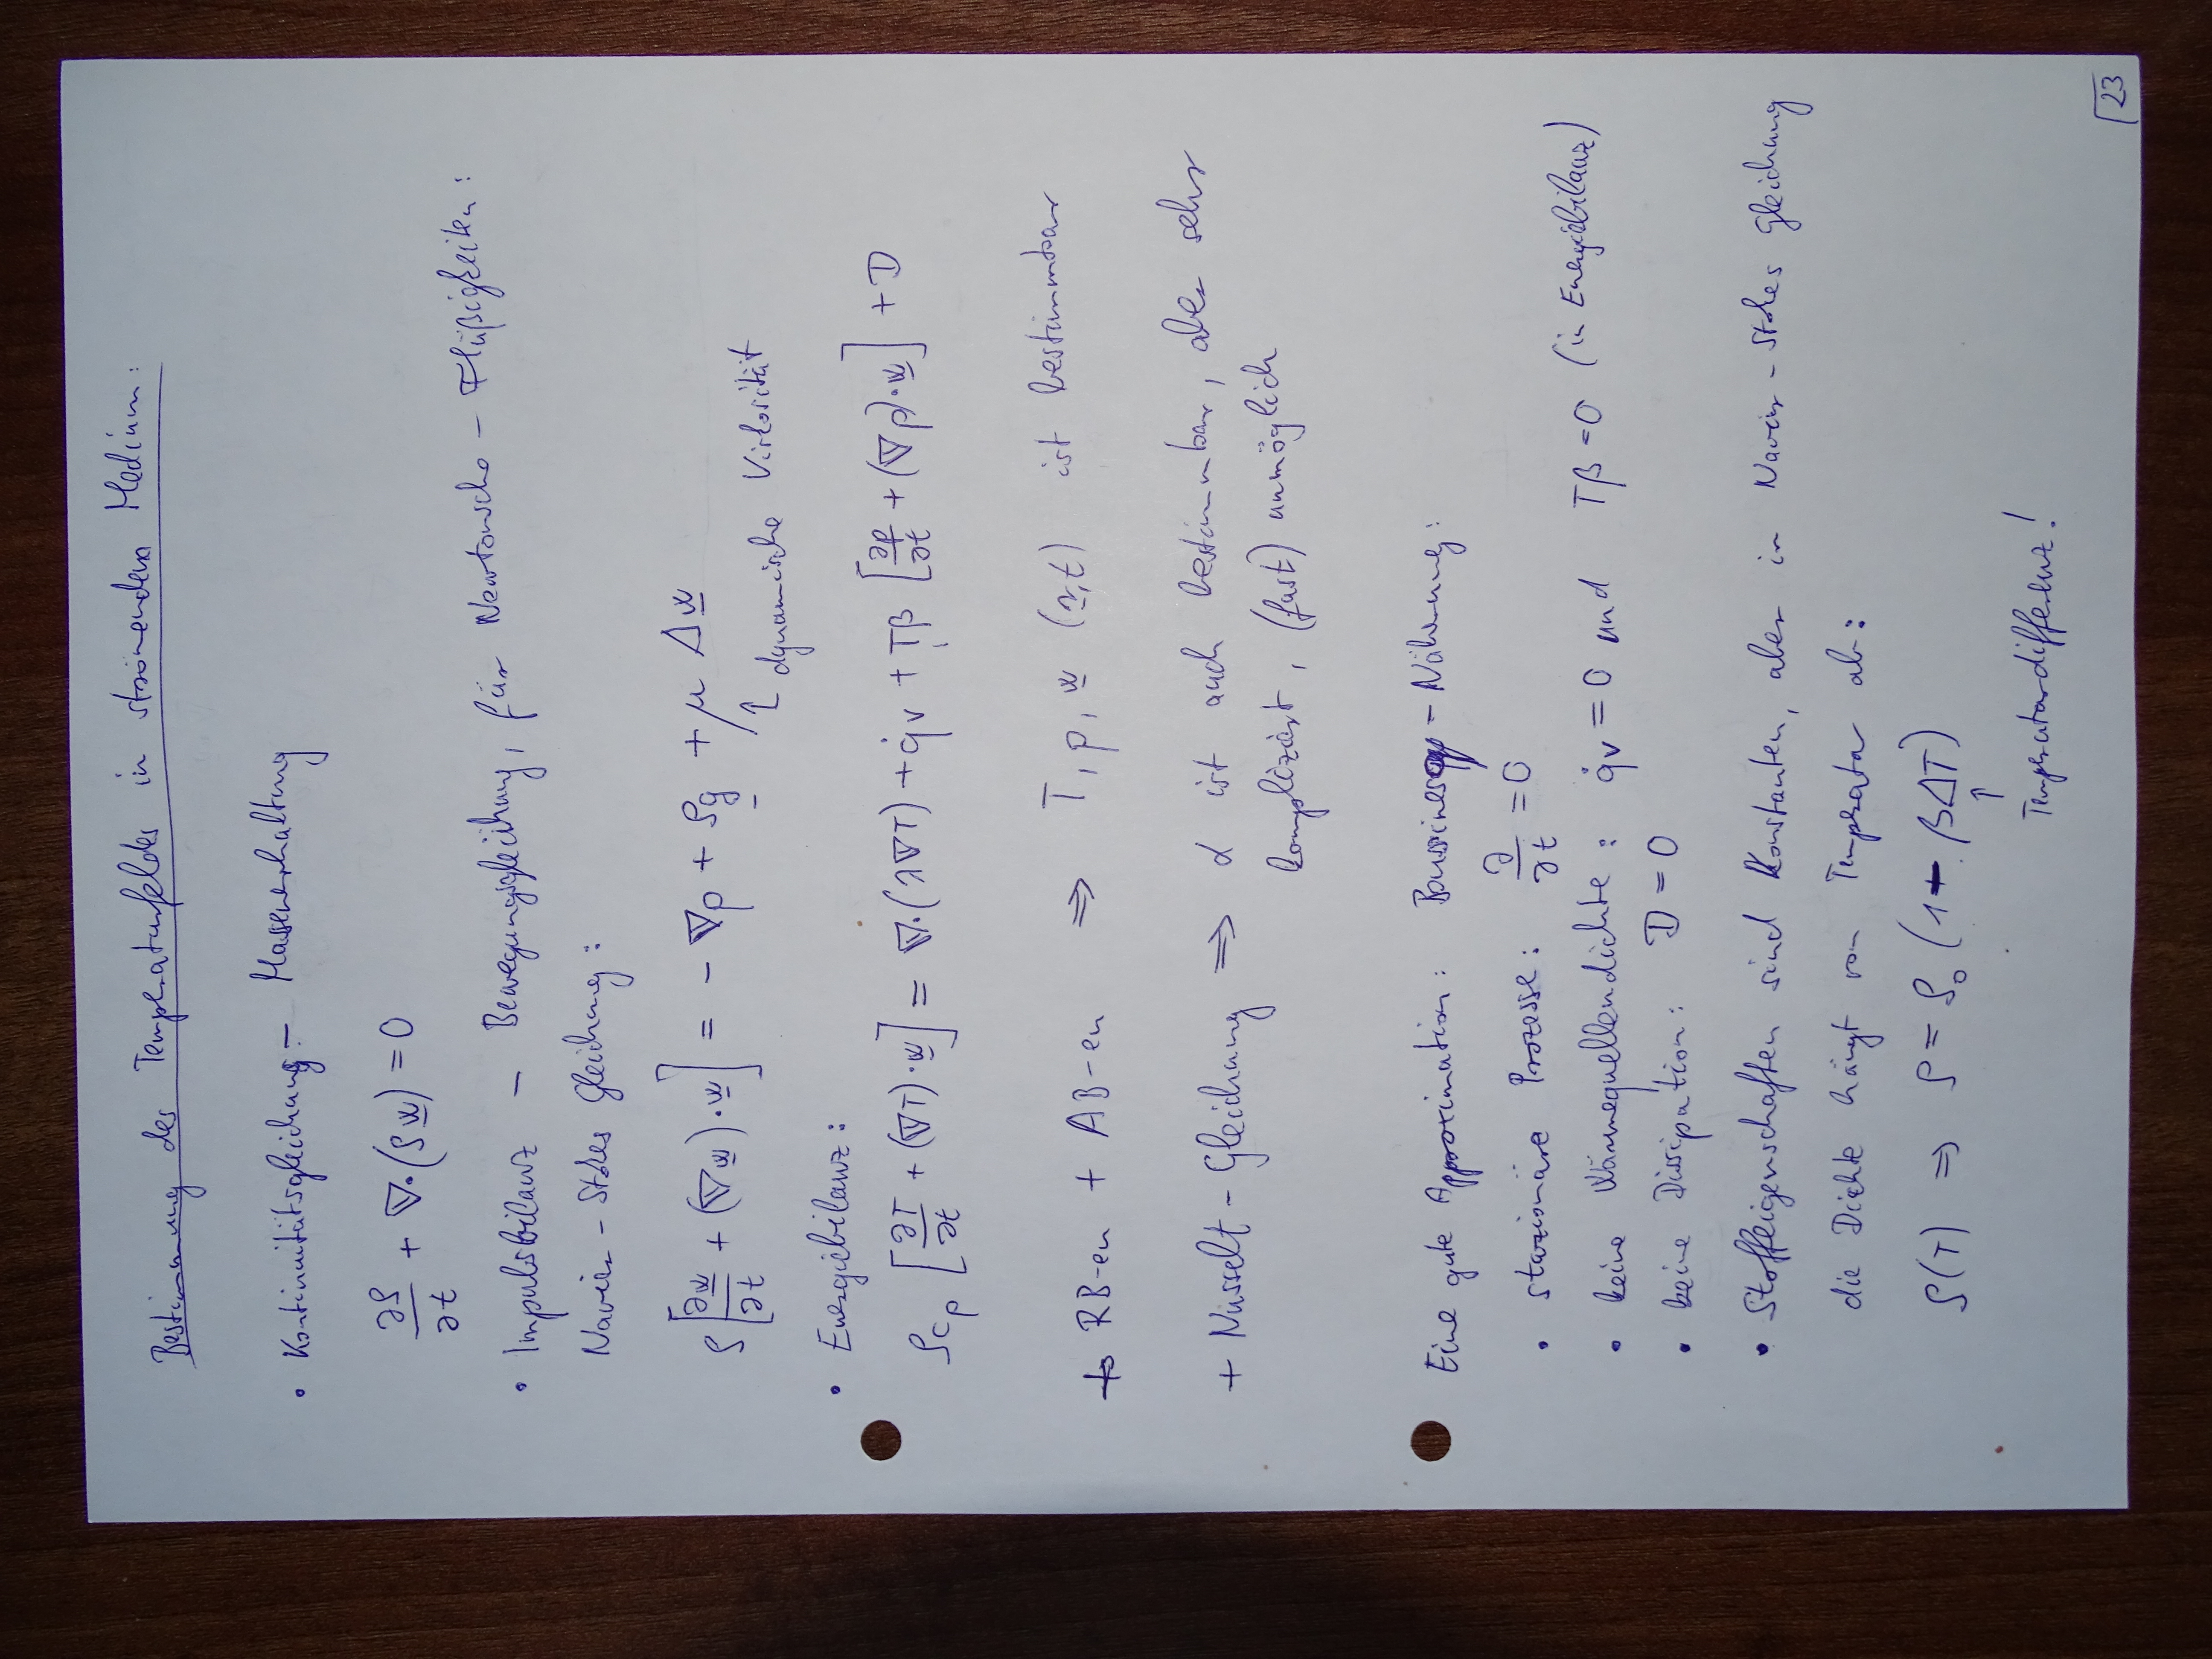 Bestimmung des Temperaturfeldes in strömendem Medium:
• Kontinuitätsgleichung – Massenerhaltung
∂ρ/∂t + ∇·(ρw) = 0
• Impulsbilanz – Bewegungsgleichung, für Newtonsche – Flüßigkeiten:
Navier – Stokes Gleichung:
ρ[∂w/∂t + (∇w)·w] = –∇p + ρg + μ Δw
↑ dynamische Viskosität
• Energiebilanz:
ρcp [∂T/∂t + (∇T)·w] = ∇·(λ∇T) + q̇v + Tβ [∂p/∂t + (∇p)·w] + D
+ RB-en + AB-en ⇒ T, p, w (r,t) ist bestimmbar
+ Nusselt – Gleichung ⇒ α ist auch bestimmbar, aber sehr
kompliziert, (fast) unmöglich
Eine gute Approximation: – Näherung:
• stazionäre Prozesse: ∂/∂t = 0
• keine Wärmequellendichte: q̇v = 0 und Tβ = 0 (in Energiebilanz)
• keine Dissipation: D = 0
• Stoffeigenschaften sind Konstanten, aber in Navier – Stokes Gleichung
die Dichte hängt von Temperatur ab:
ρ(T) ⇒ ρ = ρ₀ (1 – βΔT)
↑
Temperaturdifferenz!
23